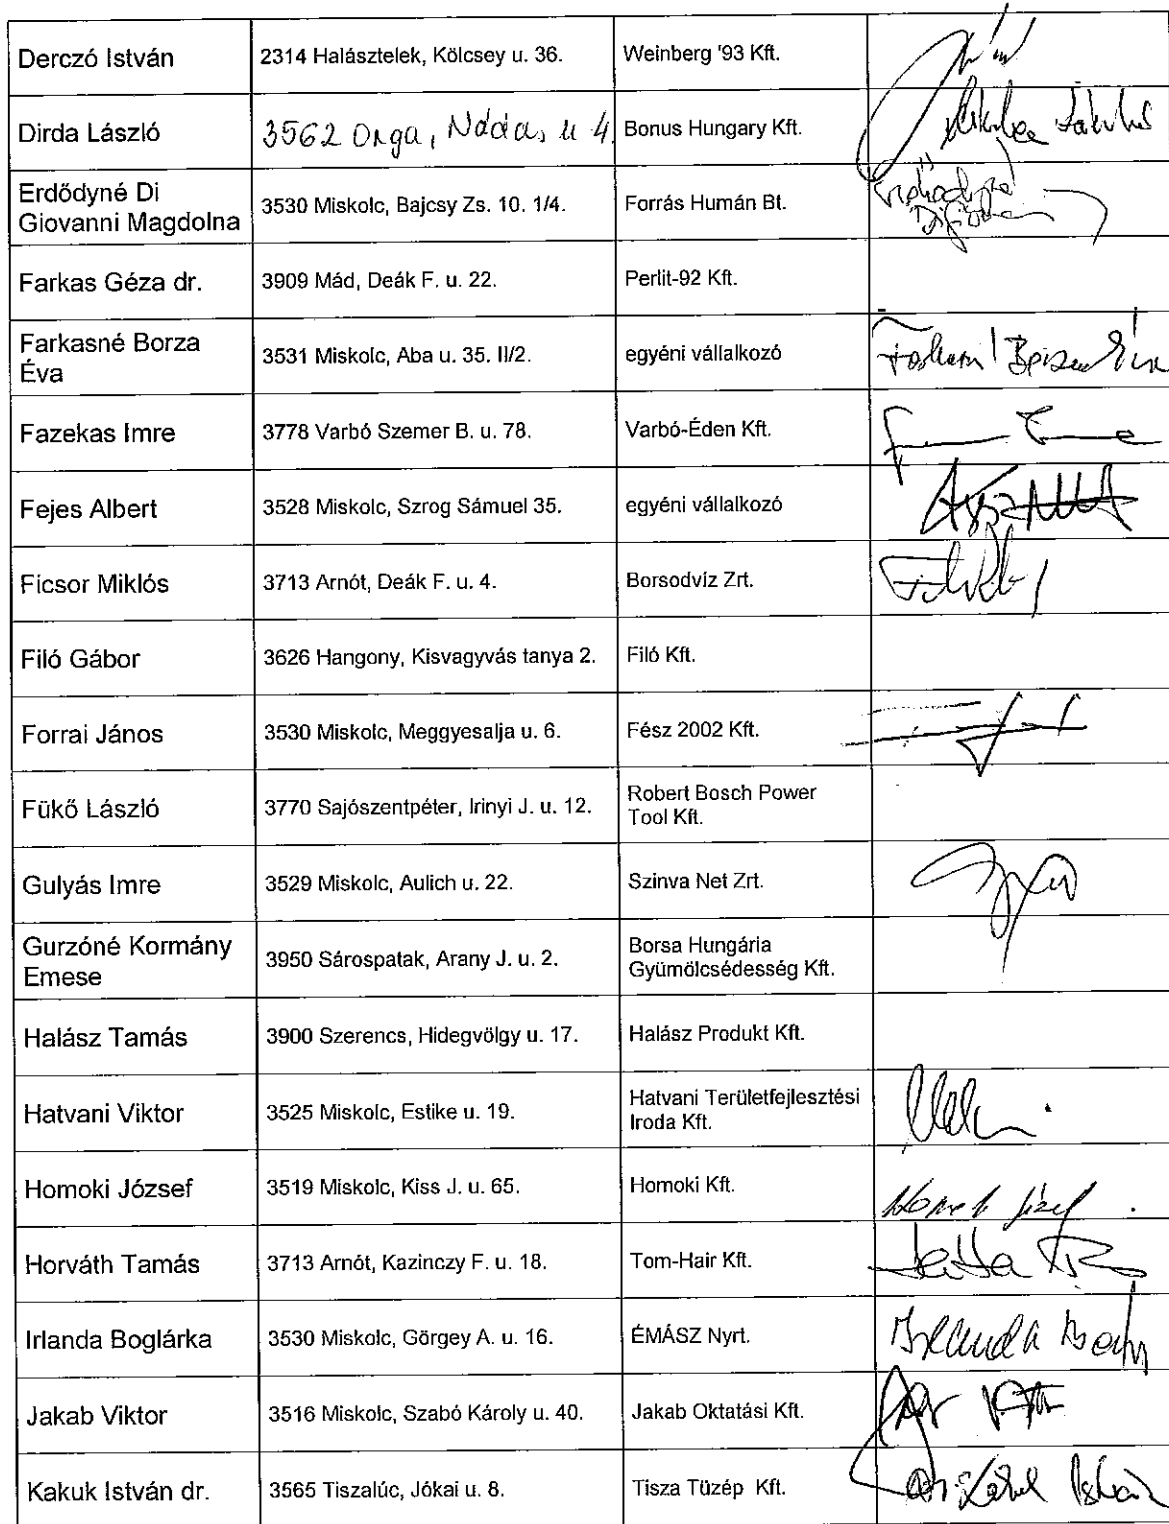 Derczó István 2314 Halásztelek, Kölcsey u. 36. Weinberg '93 Kft.
Dirda László 3562 Onga, u 4. Bonus Hungary Kft.
Erdődyné Di
Giovanni Magdolna 3530 Miskolc, Bajcsy Zs. 10. 1/4. Forrás Humán Bt.
Farkas Géza dr. 3909 Mád, Deák F. u. 22. Perlit-92 Kft.
Farkasné Borza
Éva 3531 Miskolc, Aba u. 35. II/2. egyéni vállalkozó
Fazekas Imre 3778 Varbó Szemer B. u. 78. Varbó-Éden Kft.
Fejes Albert 3528 Miskolc, Szrog Sámuel 35. egyéni vállalkozó
Ficsor Miklós 3713 Arnót, Deák F. u. 4. Borsodvíz Zrt.
Filó Gábor 3626 Hangony, Kisvagyvás tanya 2. Filó Kft.
Forrai János 3530 Miskolc, Meggyesalja u. 6. Fész 2002 Kft.
Fükő László 3770 Sajószentpéter, Irinyi J. u. 12. Robert Bosch Power
Tool Kft.
Gulyás Imre 3529 Miskolc, Aulich u. 22. Szinva Net Zrt.
Gurzóné Kormány
Emese 3950 Sárospatak, Arany J. u. 2. Borsa Hungária
Gyümölcsédesség Kft.
Halász Tamás 3900 Szerencs, Hidegvölgy u. 17. Halász Produkt Kft.
Hatvani Viktor 3525 Miskolc, Estike u. 19. Hatvani Területfejlesztési
Iroda Kft.
Homoki József 3519 Miskolc, Kiss J. u. 65. Homoki Kft.
Horváth Tamás 3713 Arnót, Kazinczy F. u. 18. Tom-Hair Kft.
Irlanda Boglárka 3530 Miskolc, Görgey A. u. 16. ÉMÁSZ Nyrt.
Jakab Viktor 3516 Miskolc, Szabó Károly u. 40. Jakab Oktatási Kft.
Kakuk István dr. 3565 Tiszalúc, Jókai u. 8. Tisza Tüzép Kft.